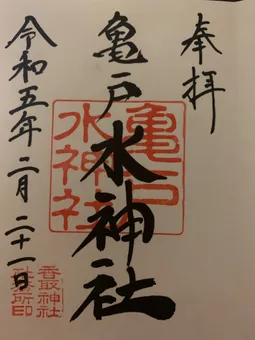 奉拝
亀戸水神社
令和五年二月二十一日
亀戸
水神社
香取神社
社務所印